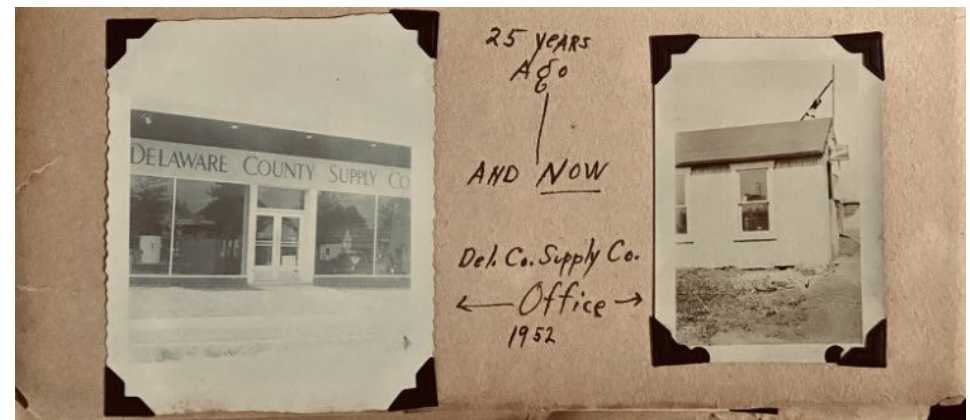 DELAWARE COUNTY SUPPLY CO
25 years
Ago
AND NOW
Del. Co. Supply Co.
Office
1952